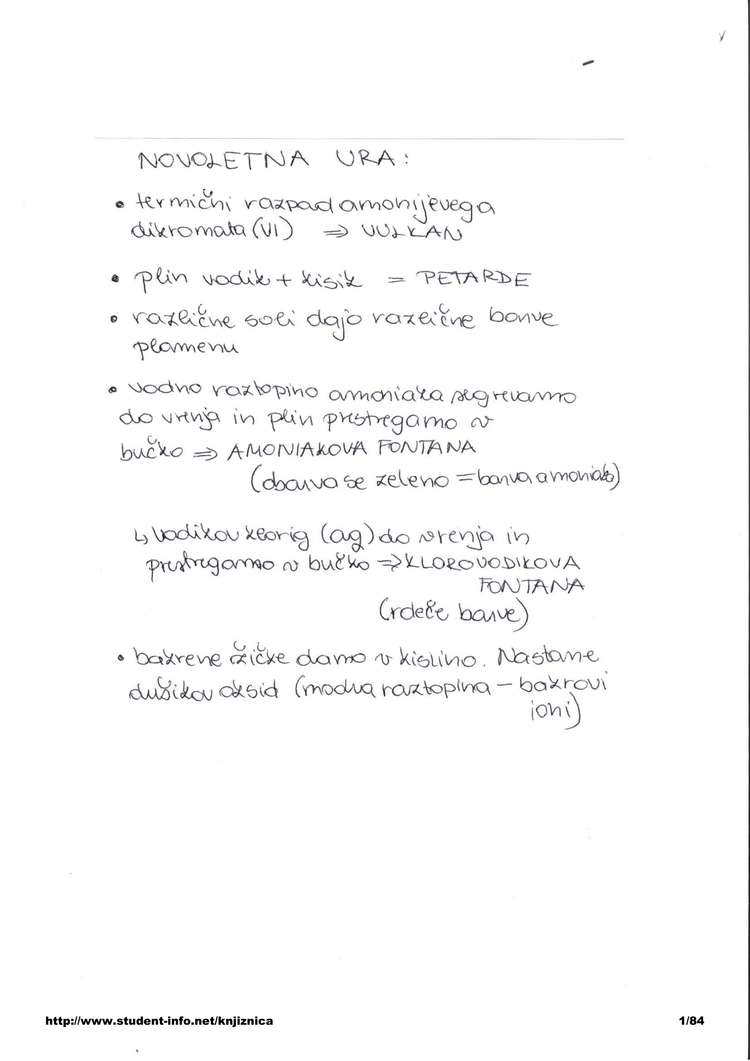 NOVOLETNA URA:
• termični razpad amonijevega
dikromata (VI) ⇒ VULKAN
• plin vodik + kisik = PETARDE
• različne soli dajo različne barve
plamenu
• vodno raztopino amoniaka segrevamo
do vrenja in plin prestregamo v
bučko ⇒ AMONIAKOVA FONTANA
(obarva se zeleno = barva amoniaka)
↳ Vodikov klorig (ag) do vrenja in
prestregamo v bučko ⇒ KLOROVODIKOVA
FONTANA
(rdeče barve)
• bakrene žičke damo v kislino. Nastane
dušikov oksid (modra raztopina – bakrovi
ioni)
http://www.student-info.net/knjiznica 1/84